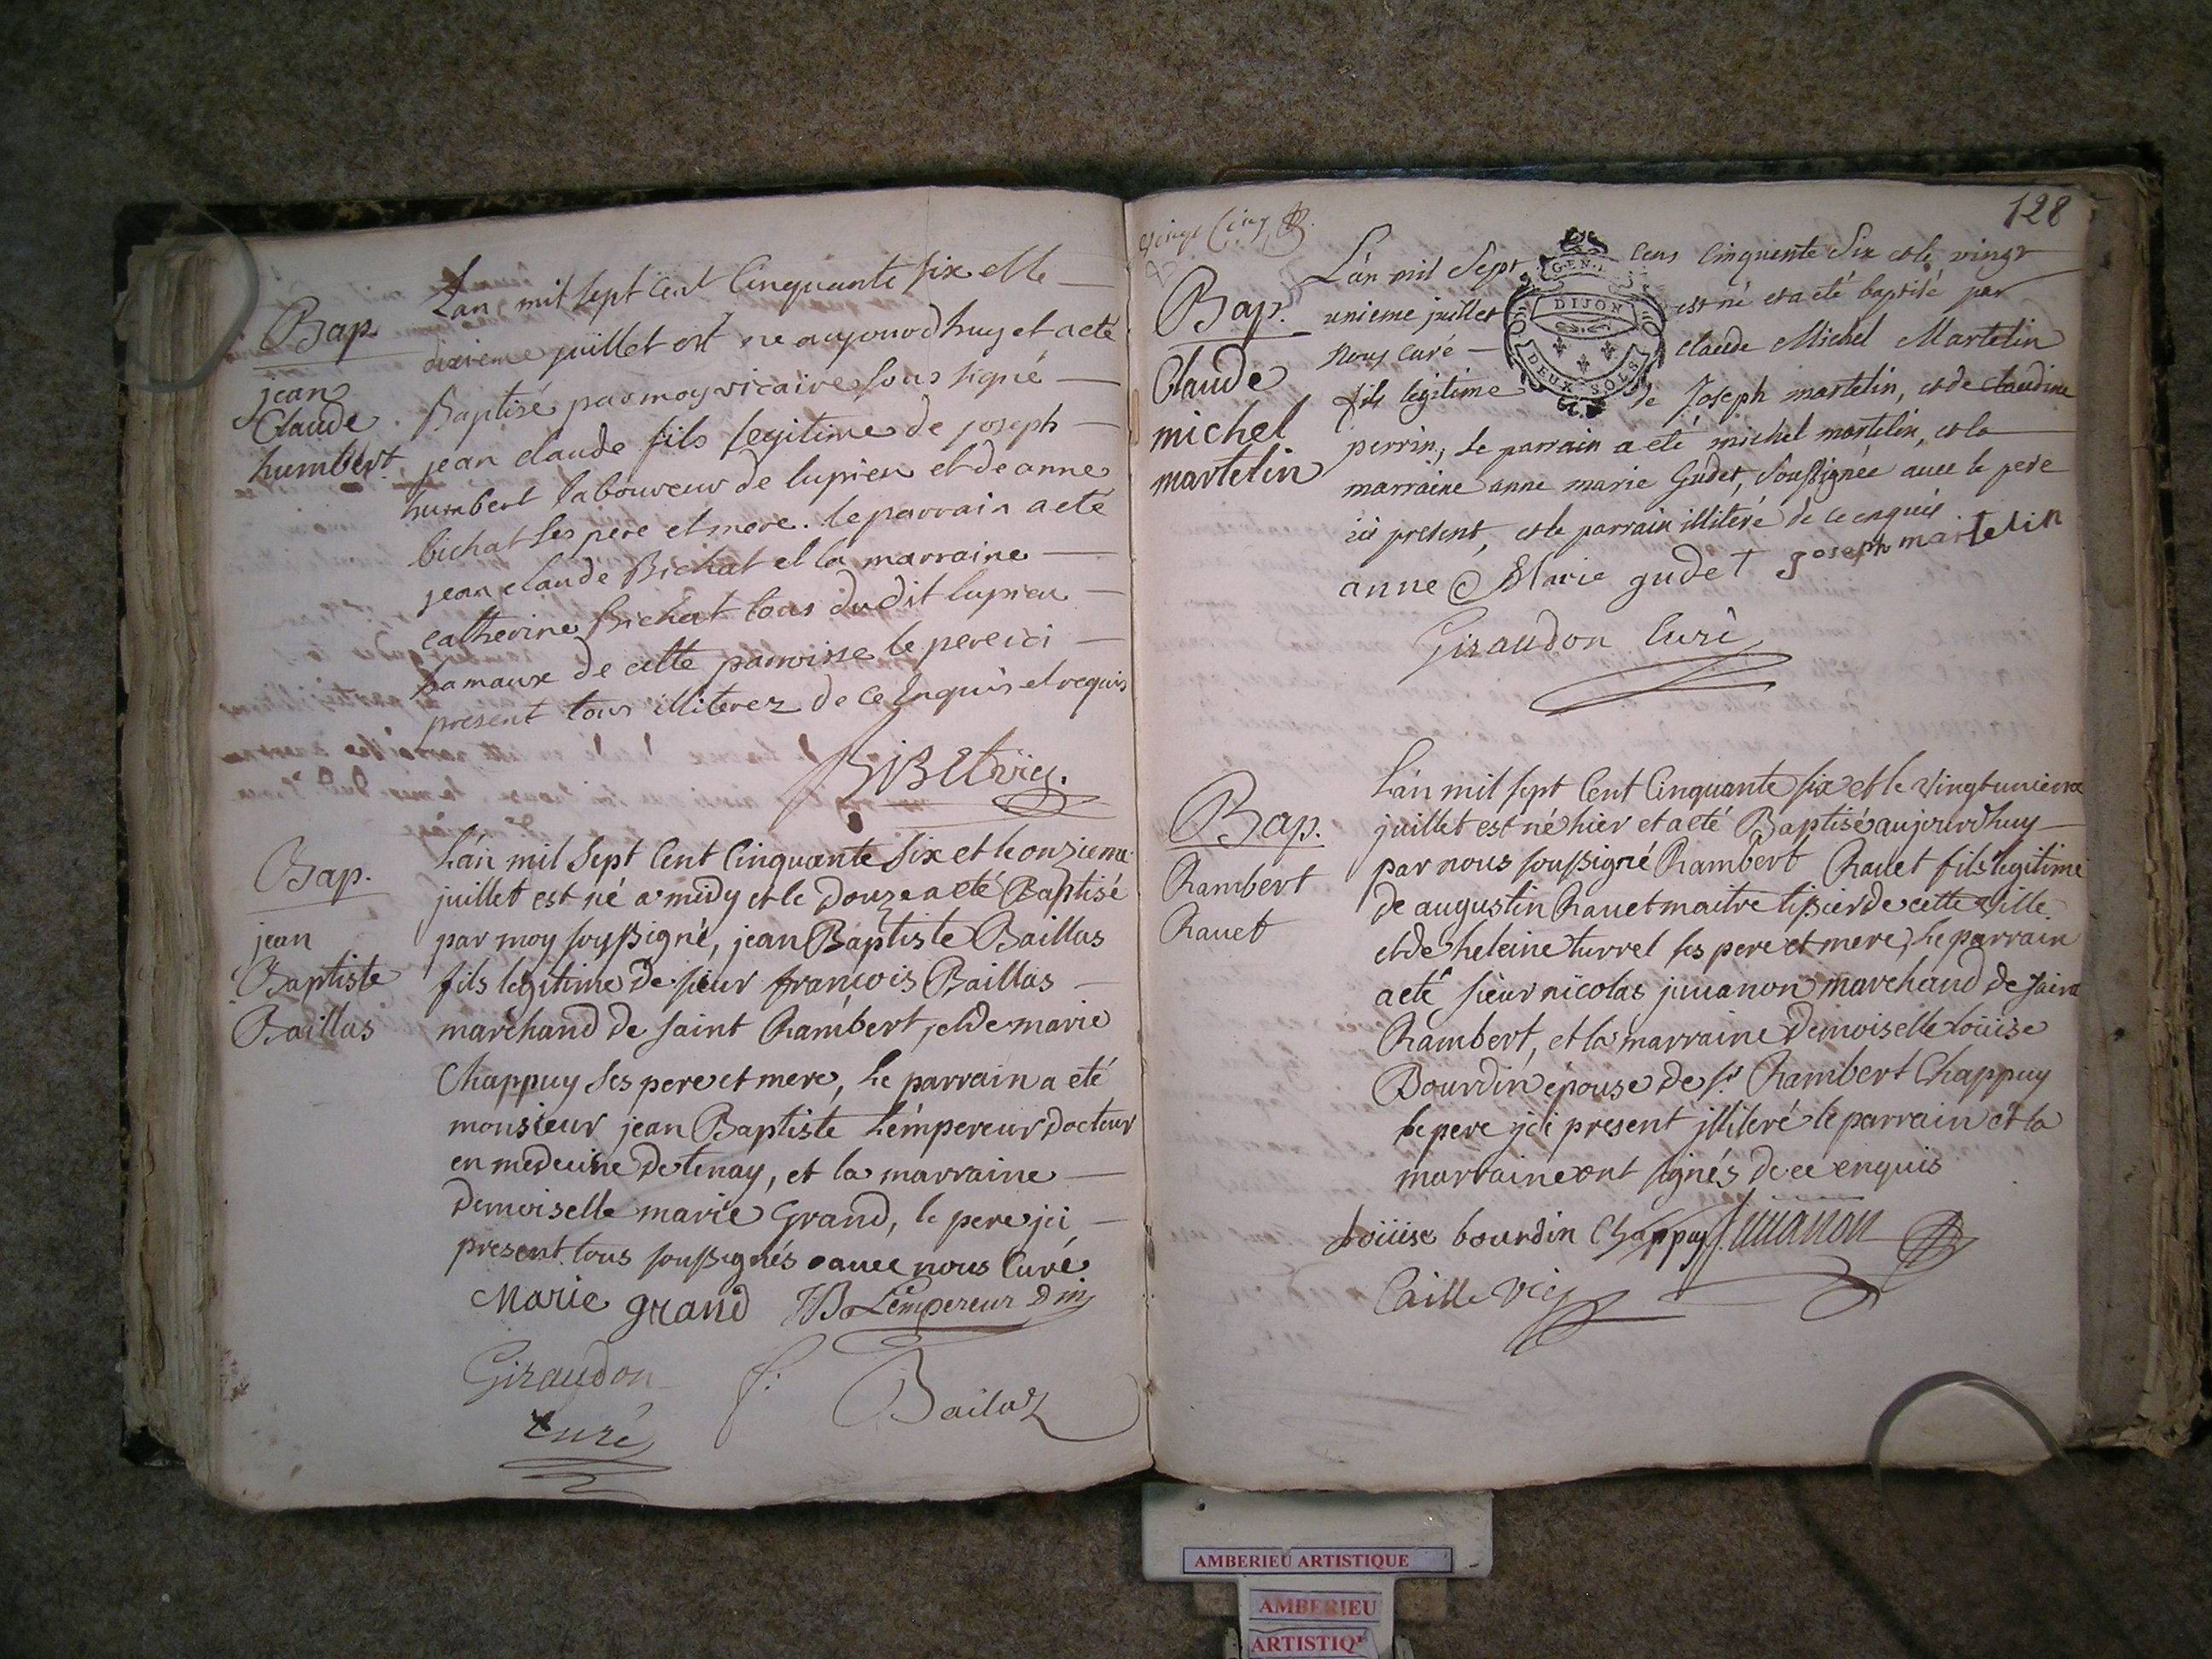 Bap.
jean
Claude
humbert.
Lan mil sept cent Cinquante six et le
dixieme juillet est ne aujourdhuy et a eté
Baptisé par moy vicaire sous signé
jean claude fils legitime de joseph
humbert laboureur de lupieu et de anne
bichat ses pere et mere. le parrain a eté
jean claude Bichat et la marraine
catherine bichat tous dudit lupieu
hamaux de cette parroisse le pere ici
present tous illiterez de ce enquis et requis
Bap.
jean
Baptiste
Baillas
L'an mil sept Cent Cinquante six et le onzieme
juillet est né a midy et le Douze a eté Baptisé
par moy soussigné, jean Baptiste Baillas
fils legitime de sieur francois Baillas
marchand de saint Rambert, et de marie
Chappuy ses pere et mere, Le parrain a eté
monsieur jean Baptiste L'empereur Docteur
en medecine de tenay, et la marraine
Demoiselle marie Grand, le pere jci
present tous soussignés avec nous Curé
Marie grand JB Lempereur D m
Giraudon f. Bailaz
curé
128
vingt Cinq
Bap.
Claude
michel
martelin
L'an mil Sept Cens Cinquente Six et le vingt
unieme juillet est né et a eté baptisé par
Nous curé claude Michel Martelin
fils legitime de Joseph martelin, et de claudine
perrin, Le parrain a eté michel martelin, et la
marraine anne marie Gudet, soussignée avec le pere
ici present, et le parrain illiteré de ce enquis
anne Marie gudet joseph martelin
Giraudon Curé
GEN.
DIJON
DEUX SOLS
Bap.
Rambert
Rauet
L'an mil sept Cent Cinquante six et le vingt unieme
juillet est né hier et a eté Baptisé aujourdhuy
par nous soussigné Rambert Rauet fils legitime
de augustin Rauet maitre tissier de cette ville
et de heleine turrel ses pere et mere, Le parrain
a eté sieur nicolas juuanon marchand de saint
Rambert, et la marraine Demoiselle Loüise
Bourdin épouse de sr Rambert Chappuy
le pere jci present jlliteré le parrain et la
marraine ont signés de ce enquis
Loüise bourdin Chappuy juuanon
Caille vic
AMBERIEU ARTISTIQUE
AMBERIEU
ARTISTIQ